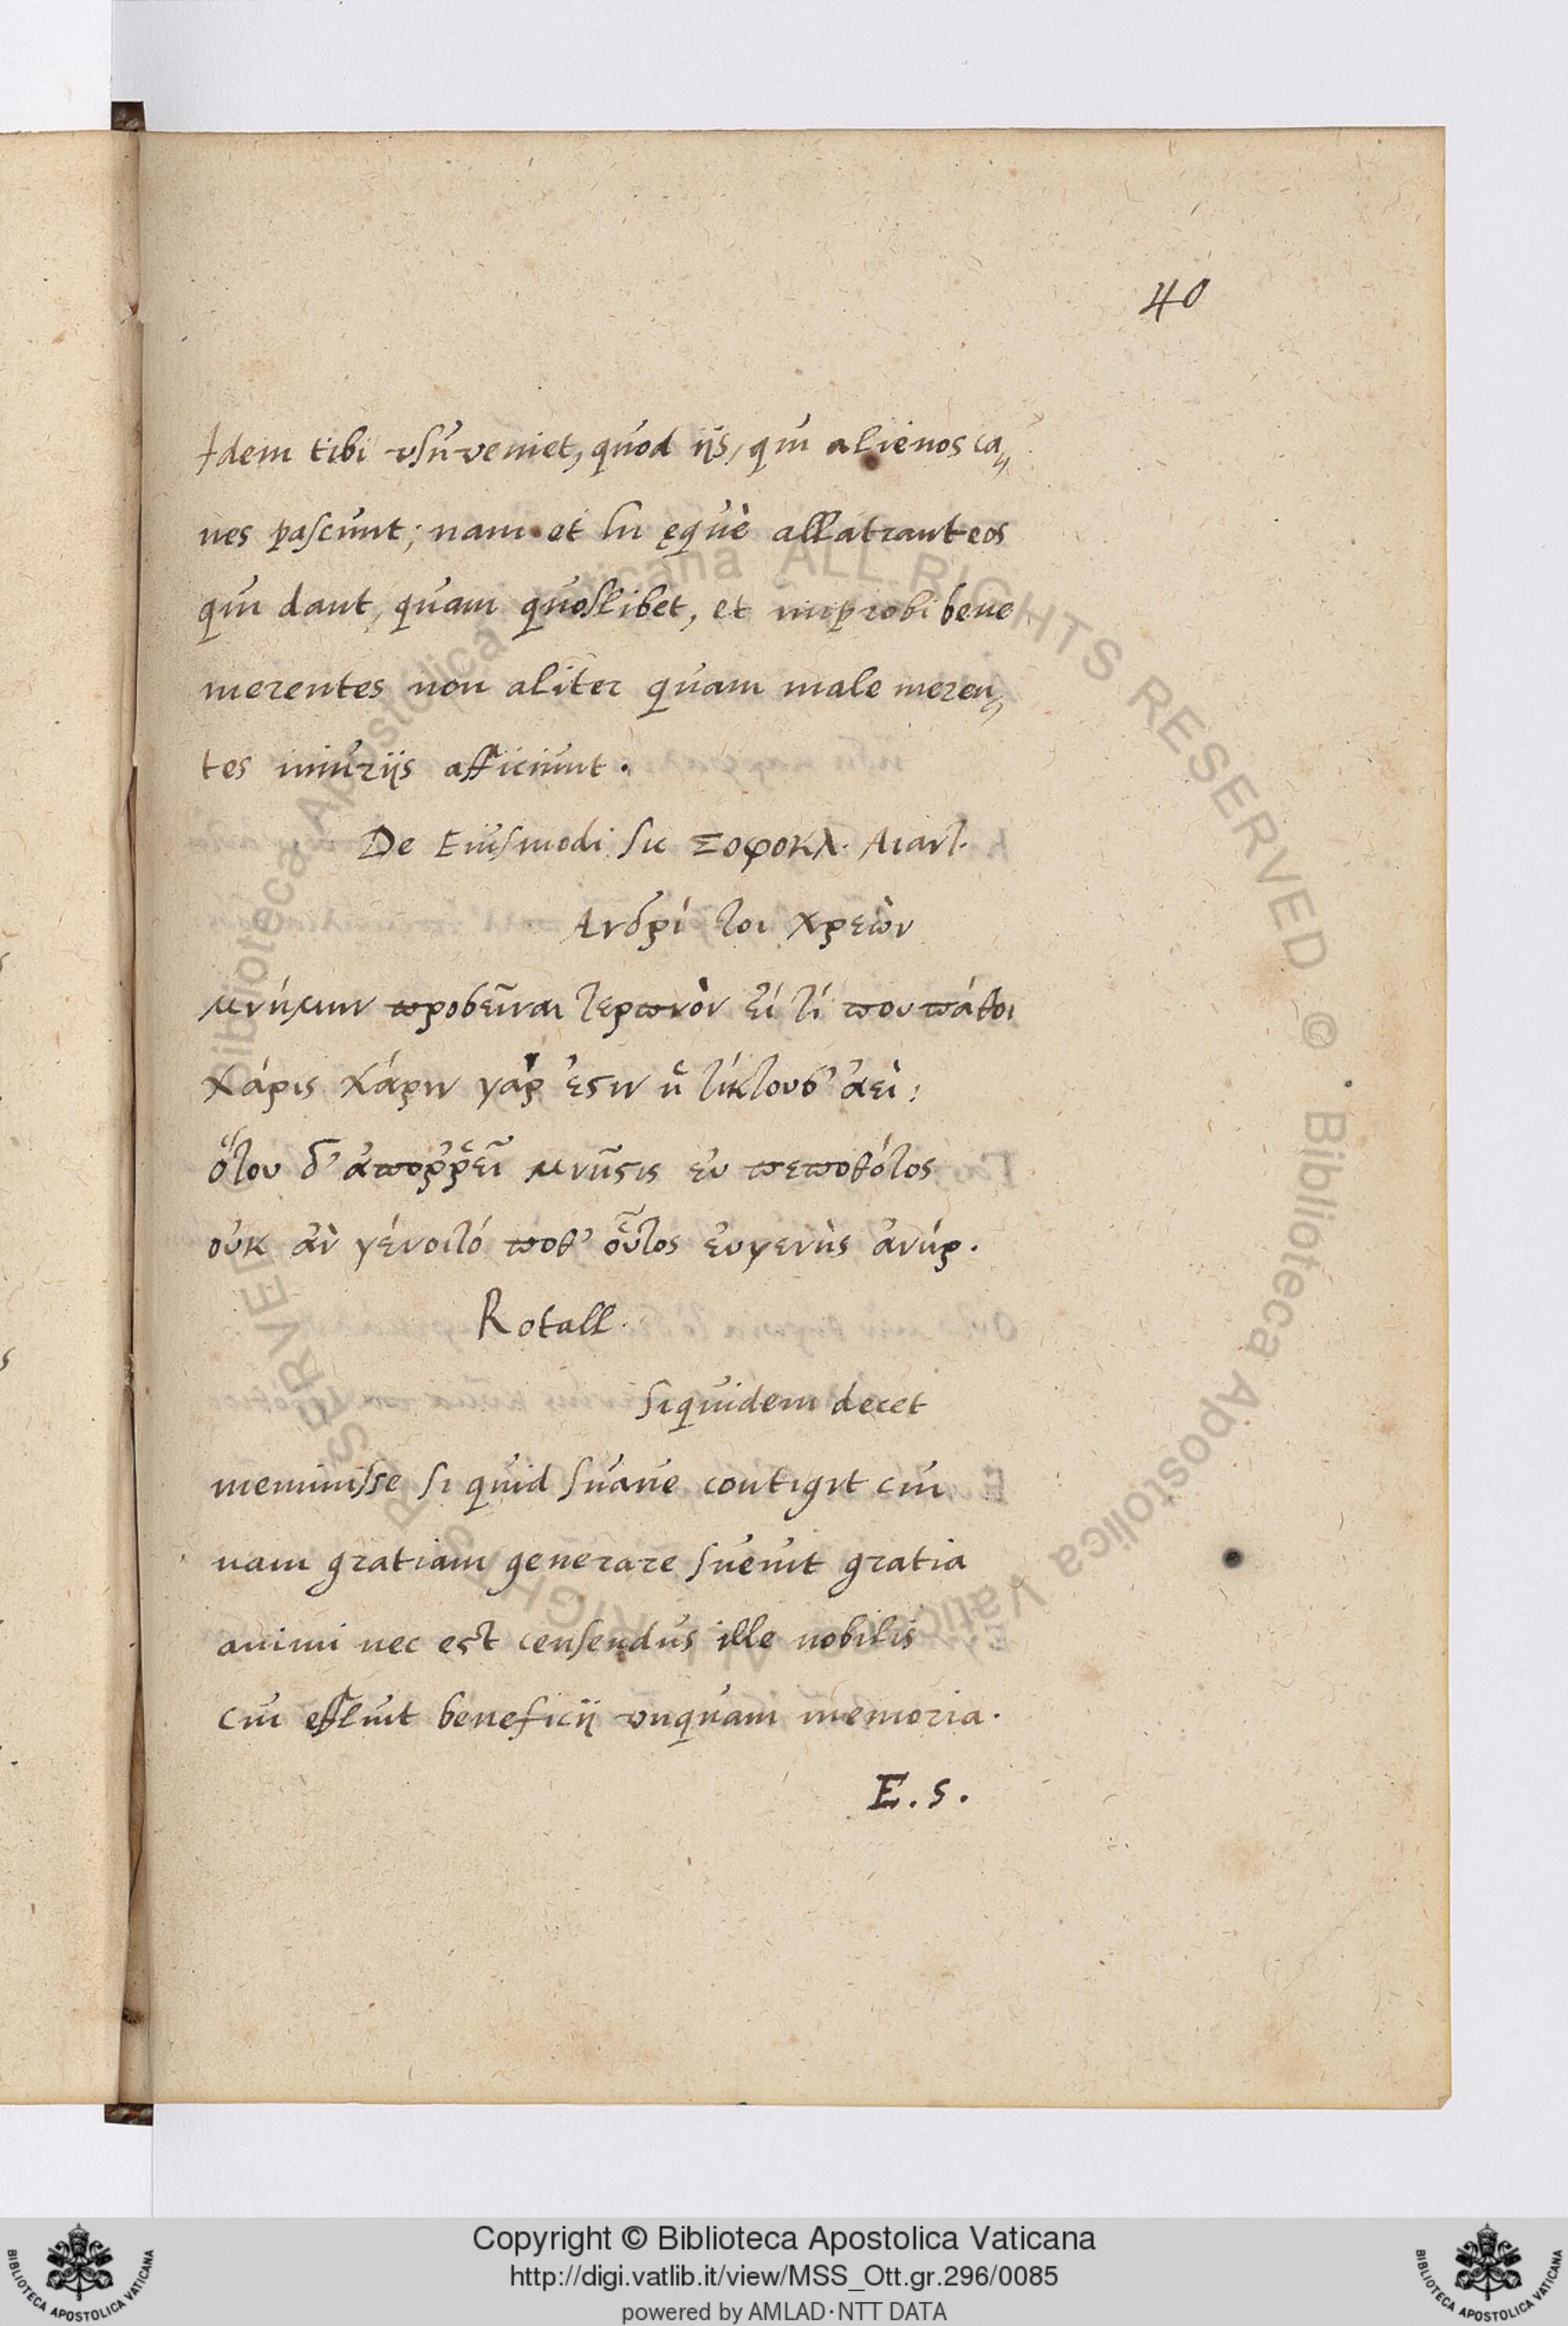 40
Idem tibi vsu veniet, quod ijs, qui alienos ca„
nes pascunt; nam et hi ęquè allatrant eos
qui dant, quam quoslibet, et improbi bene
merentes non aliter quam male meren„
tes iniurijs afficiunt.
De Eiusmodi sic Σοφοκλ. Αιαντ.
Ανδρί τοι χρεὼν
μνήμην προσεῖναι τερπνὸν εἴ τί που πάθοι
χάρις χάριν γάρ ἐστιν ἣ τίκτουσ᾽ ἀεὶ:
ὅτου δ᾽ ἀποῤῥεῖ μνῆστις ἐυ πεποθότος
οὐκ ἀν γένοιτό ποθ᾽ οὗτος ἐυγενὴς ἀνήρ.
Rotall.
siquidem decet
meminisse si quid suaue contigit cui
nam gratiam generare sueuit gratia
animi nec est censendus ille nobilis
cui effluit beneficij vnquam memoria.
E. s.
Biblioteca Apostolica Vaticana ALL RIGHTS RESERVED © Biblioteca Apostolica Vaticana ALL RIGHTS RESERVED ©
Copyright © Biblioteca Apostolica Vaticana
http://digi.vatlib.it/view/MSS_Ott.gr.296/0085
powered by AMLAD·NTT DATA
BIBLIOTECA APOSTOLICA VATICANA
BIBLIOTECA APOSTOLICA VATICANA